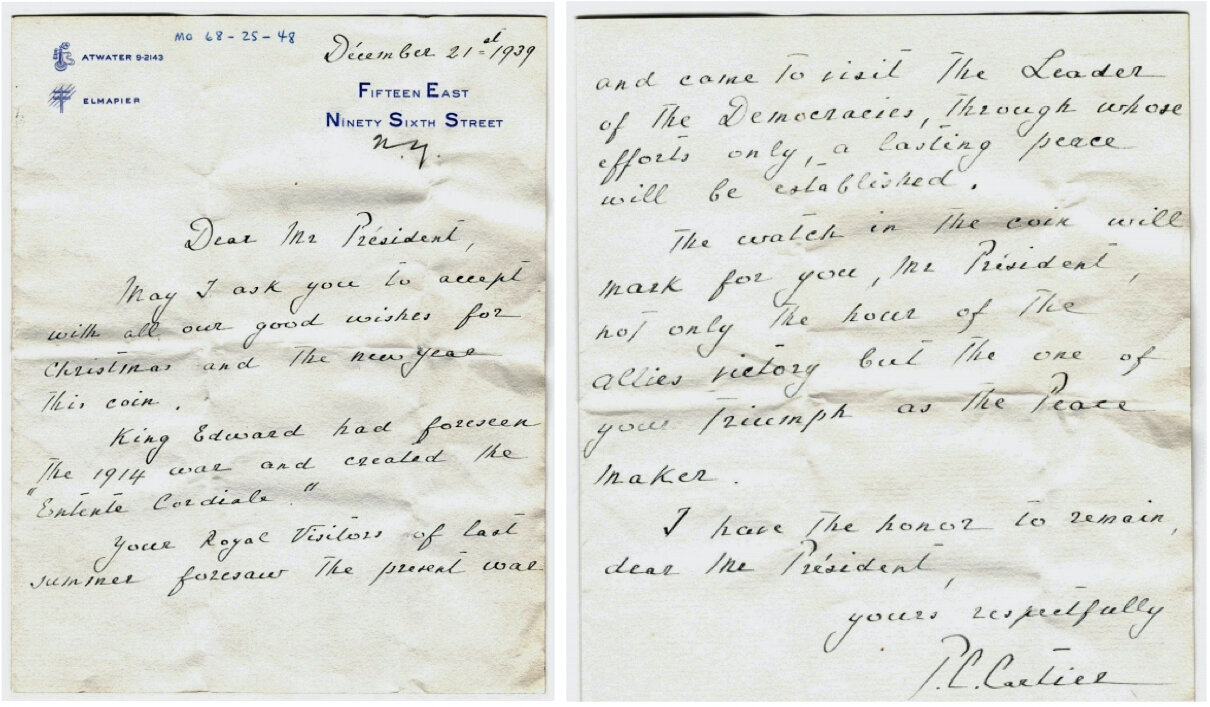 MO 68-25-48
Décember 21st 1939
ATWATER 9-2143
ELMAPIER
FIFTEEN EAST
NINETY SIXTH STREET
N.Y.
Dear Mr Président,
May I ask you to accept
with all our good wishes for
Christmas and the new year
this coin.
King Edward had foreseen
the 1914 war and created the
"Entente Cordiale."
Your Royal Visitors of last
summer foresaw the present war
and came to visit the Leader
of the Democracies, through whose
efforts only, a lasting peace
will be established.
The watch in the coin will
mark for you, Mr Président,
not only the hour of the
allies victory but the one of
your triumph as the Peace
maker.
I have the honor to remain,
dear Mr Président,
yours respectfully
P.C. Cartier